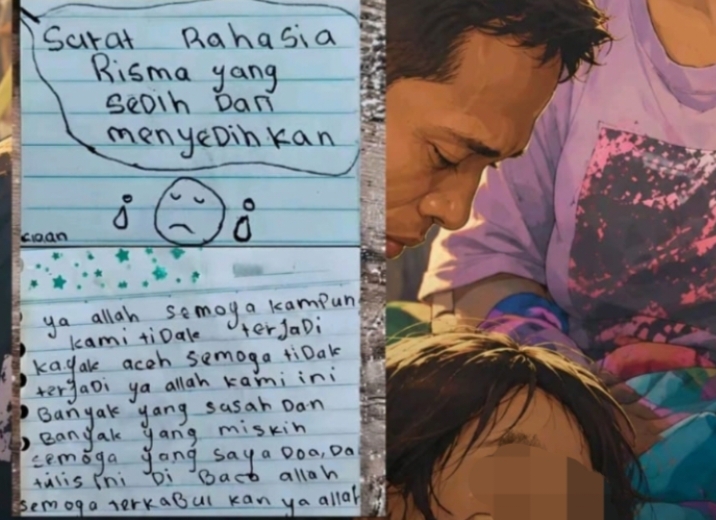 Surat Rahasia
Risma yang
seDih Dan
menyeDihkan
ya allah semoga kampun
kami tiDak terjaDi
kayak aceh semoga tiDak
terjaDi ya allah kami ini
Banyak yang susah Dan
Banyak yang miskin
semoga yang saya Doa, Da
tulis ini Di Baca allah
semoga terkaBul kan ya allah